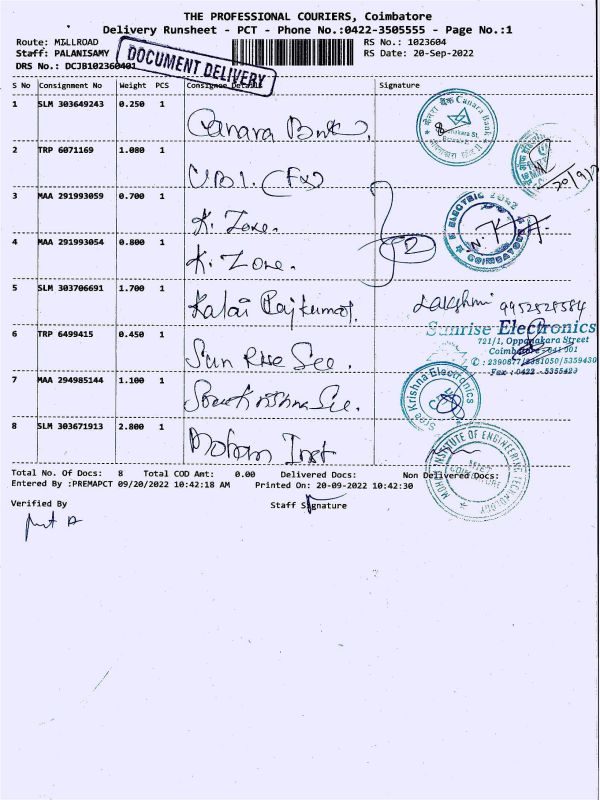 THE PROFESSIONAL COURIERS, Coimbatore
Delivery Runsheet - PCT - Phone No.:0422-3505555 - Page No.:1
Route: MILLROAD
RS No.: 1023604
Staff: PALANISAMY
RS Date: 20-Sep-2022
DRS No.: DCJB102360401
DOCUMENT DELIVERY
S No Consignment No Weight PCS Consignee Details Signature
1 SLM 303649243 0.250 1 Canara Bnk
Canara Bank
2 TRP 6071169 1.080 1 UBI. (Fx)
20/9/2
3 MAA 291993059 0.700 1 K. Zone.
ELECTRIC
COIMBATORE
4 MAA 291993054 0.800 1 K. Zone. 2
5 SLM 303706691 1.700 1 Kalai Rajkumar. Lakshmi 9952528584
Sunrise Electronics
721/1, Oppanakara Street
Coimbatore - 641 001
6 TRP 6499415 0.450 1 Sun Rise See.
Fax : 0422 - 5355423
7 MAA 294985144 1.100 1 Sree Krishna See.
Sree Krishna Electronics
8 SLM 303671913 2.800 1 Mohan Inst
INSTITUTE OF ENGINEERING TECHNOLOGY
Total No. Of Docs: 8 Total COD Amt: 0.00 Delivered Docs: Non Delivered Docs:
Entered By :PREMAPCT 09/20/2022 10:42:18 AM Printed On: 20-09-2022 10:42:30
Verified By Staff Signature